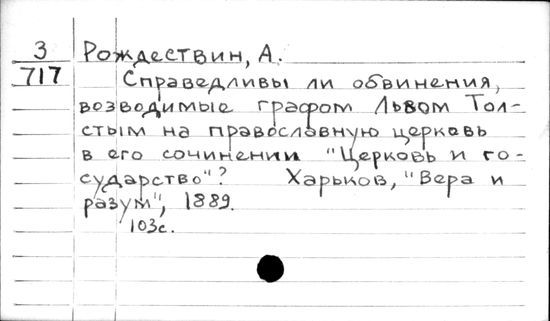 3 Рождествин, А.
717 Справедливы ли обвинения,
возводимые графом Львом Тол-
стым на православную церковь
в его сочинении "Церковь и го-
сударство"? Харьков, "Вера и
разум", 1889.
103с.